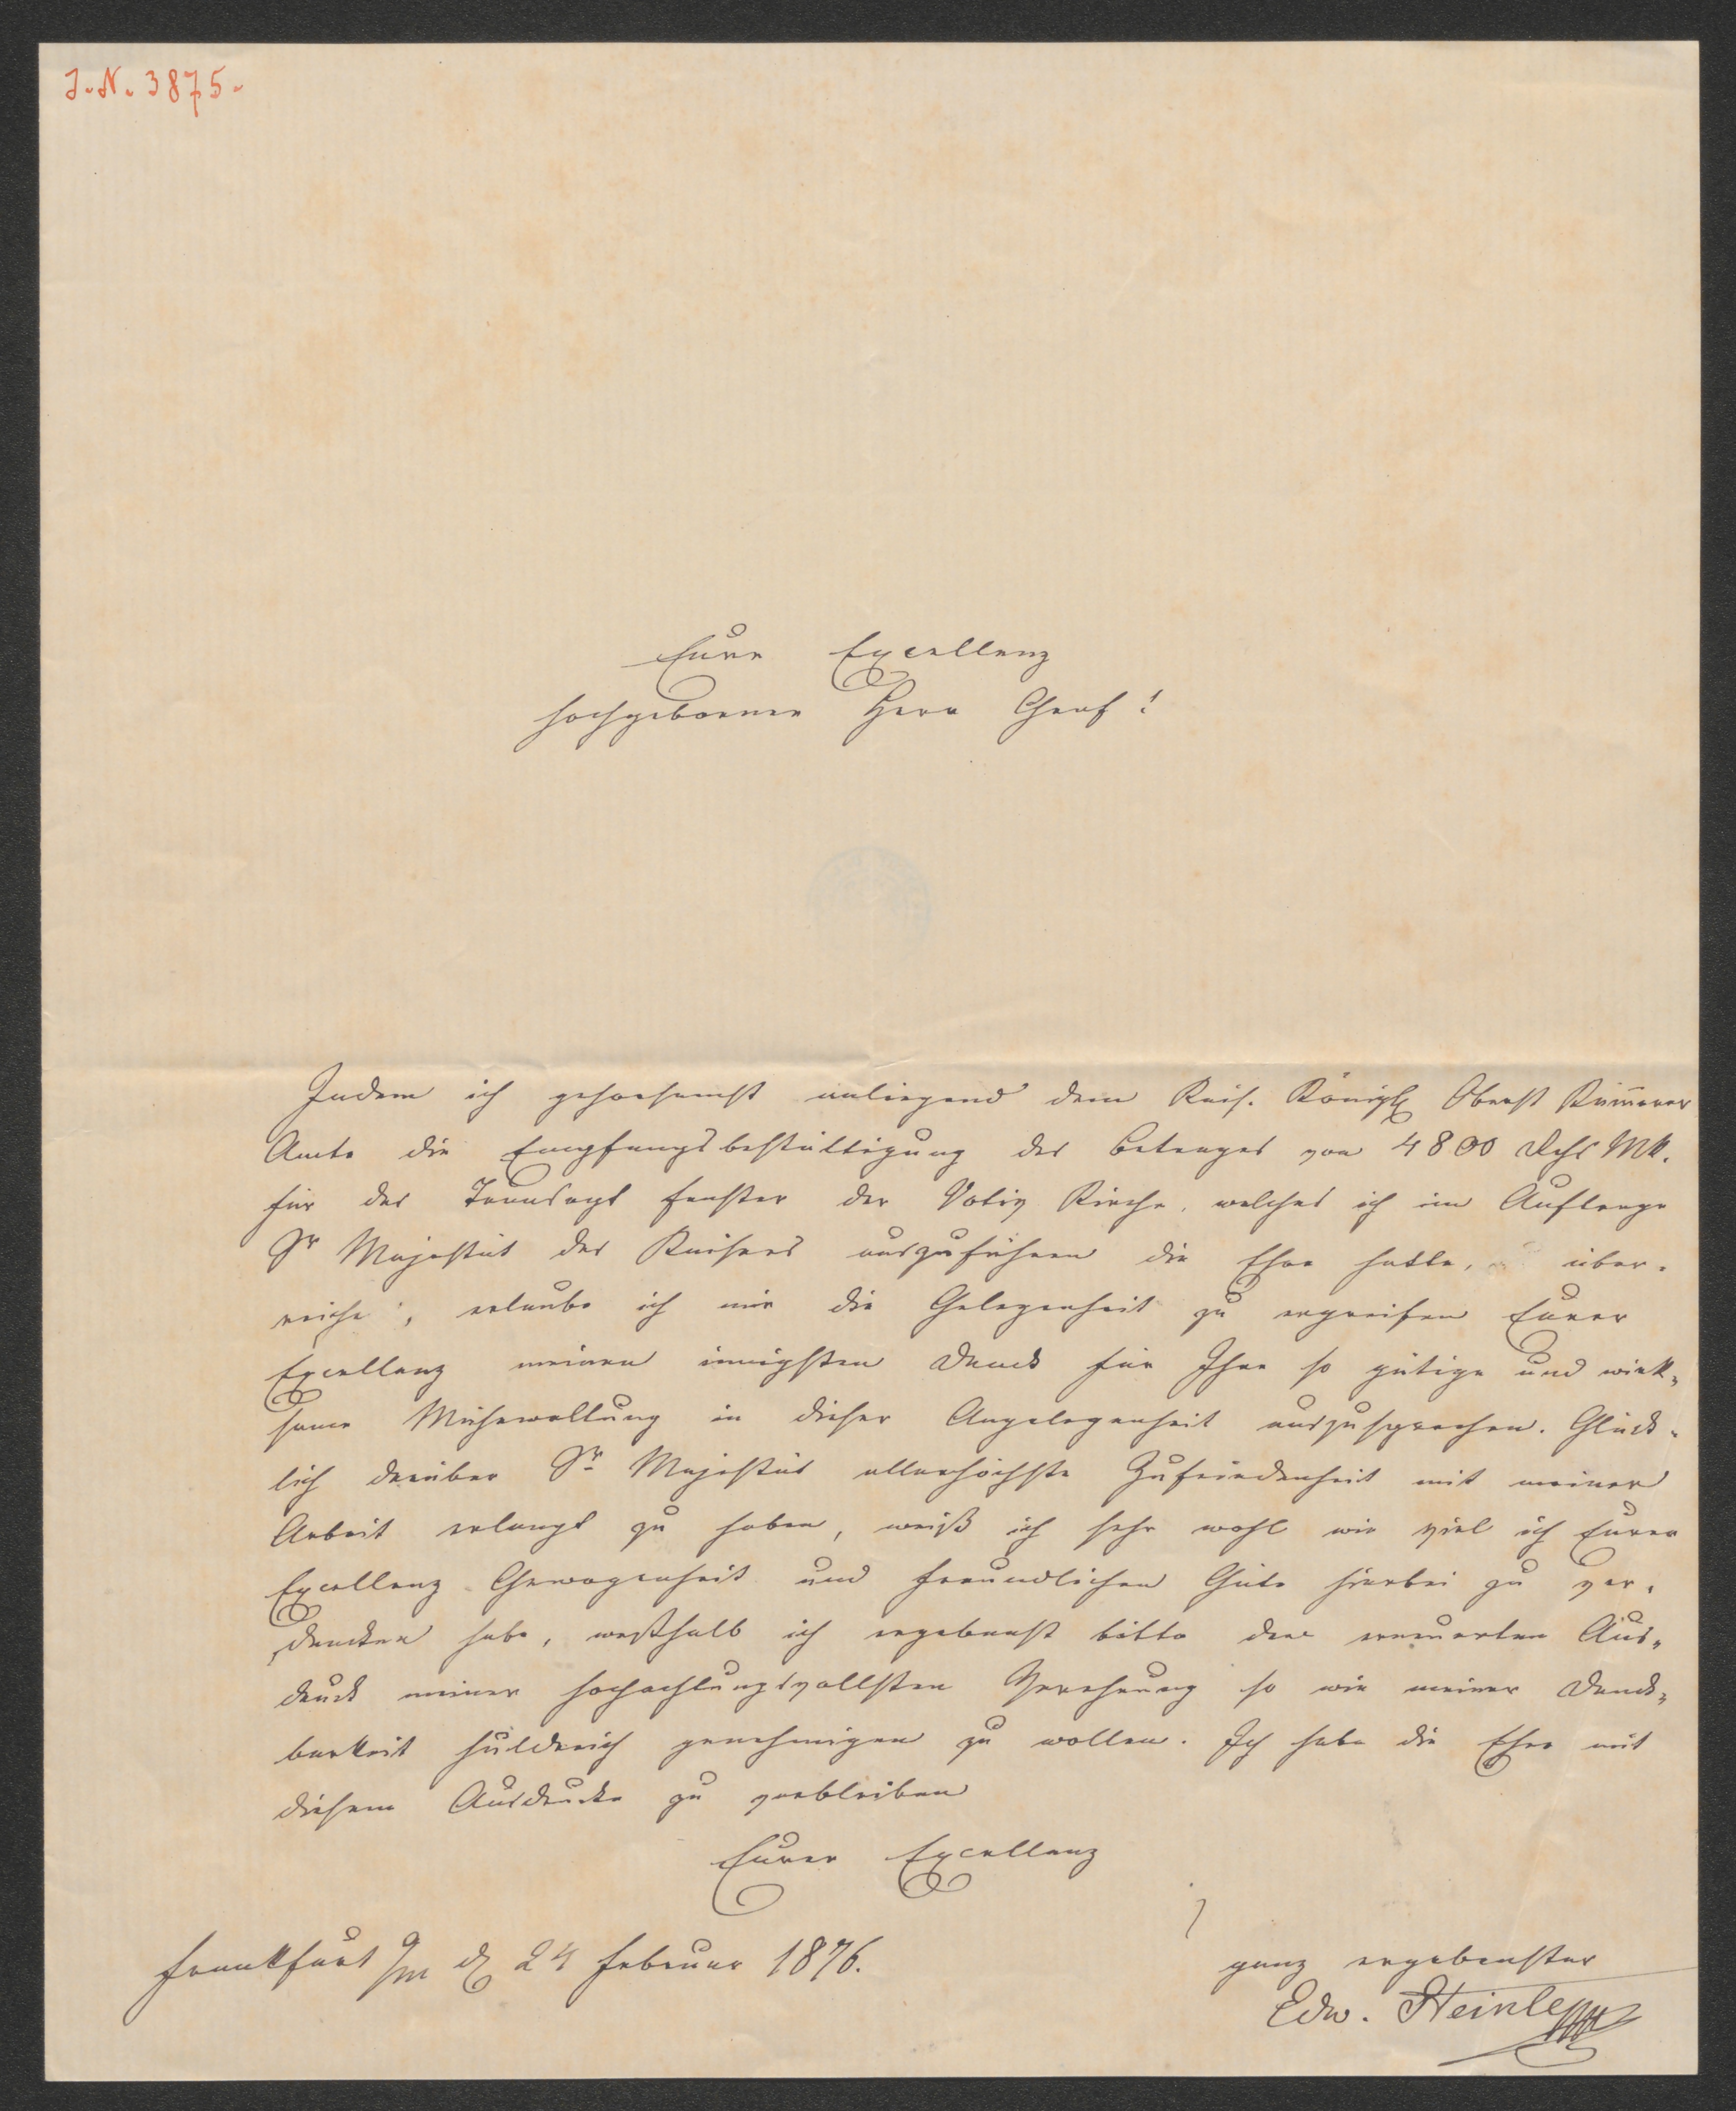 J. N. 3875.
Eure Excellenz
hochgeborner Herr Graf!
Indem ich gehorsamst anliegend dem Kais. Königl. Oberst Kämerer
Amte die Empfangsbestättigung des Betrages von 4800 Rchs Mk.
für das Transept Fenster der Votiv Kirche, welches ich im Auftrage
Sr Majestät des Kaisers auszuführen die Ehre hatte, über-
reiche, erlaube ich mir die Gelegenheit zu ergreifen Eurer
Excellenz meinen innigsten Danck für Ihre so gütige und wirk-
same Mühewaltung in dieser Angelegenheit auszusprechen. Glück-
lich darüber Sr Majestät allerhöchste Zufriedenheit mit meiner
Arbeit erlangt zu haben, weiß ich sehr wohl wie viel ich Eurer
Excellenz Gewogenheit und freundlichen Güte hierbei zu ver-
dancken habe, weßhalb ich ergebenst bitte den erneuerten Aus-
druck meiner hochachtungsvollsten Verehrung so wie meiner Danck-
barkeit huldreich genehmigen zu wollen. Ich habe die Ehre mit
diesem Ausdrucke zu verbleiben
Eurer Excellenz
Frankfurt a/m d 24 Februar 1876.
ganz ergebenster
Edw. Steinle